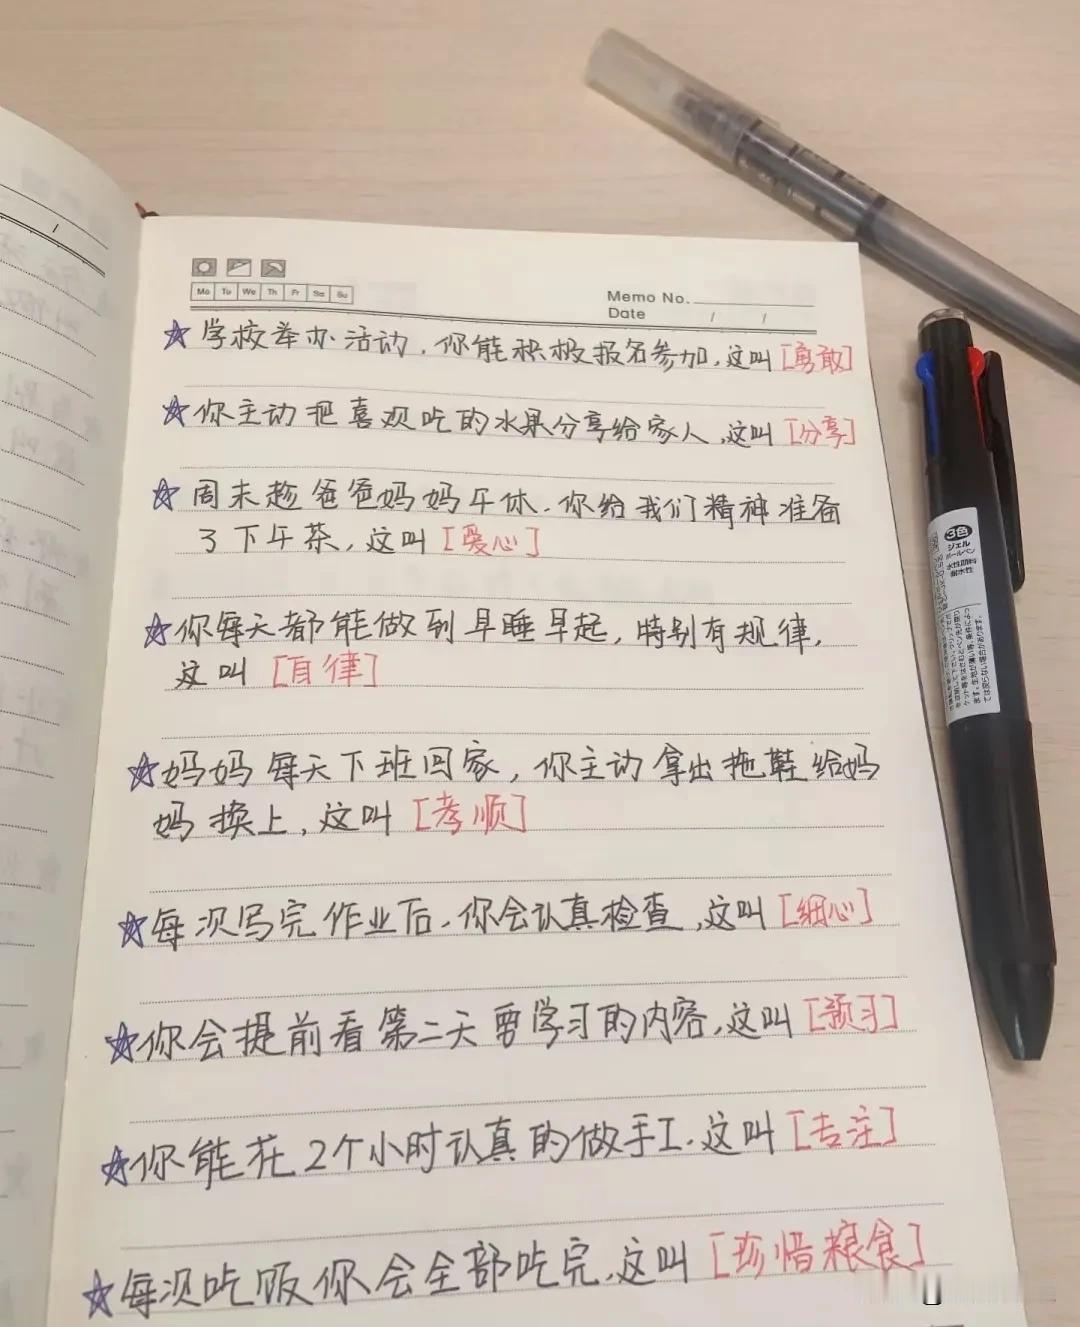 Mo Tu We Th Fr Sa Su
Memo No.
Date / /
学校举办活动,你能积极报名参加,这叫[勇敢]
你主动把喜欢吃的水果分享给家人,这叫[分享]
周末趁爸爸妈妈午休,你给我们精神准备
了下午茶,这叫[爱心]
你每天都能做到早睡早起,特别有规律,
这叫[自律]
妈妈每天下班回家,你主动拿出拖鞋给妈
妈换上,这叫[孝顺]
每次写完作业后,你会认真检查,这叫[细心]
你会提前看第二天要学习的内容,这叫[预习]
你能花2个小时认真的做手工,这叫[专注]
每次吃饭你会全部吃完,这叫[珍惜粮食]
3色
ジェル
ボールペン
水性顔料
耐水性